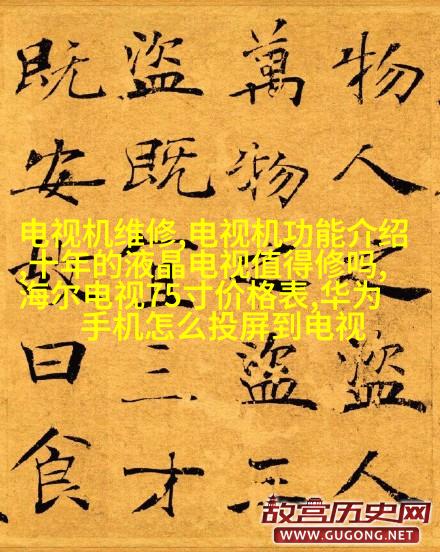 物人之盜人
萬物之盜三
盜既宜三才
既安故曰食
电视机维修,电视机功能介绍
,十年的液晶电视值得修吗,
海尔电视75寸价格表,华为
手机怎么投屏到电视
故宫历史网
WWW.GUGONG.NET